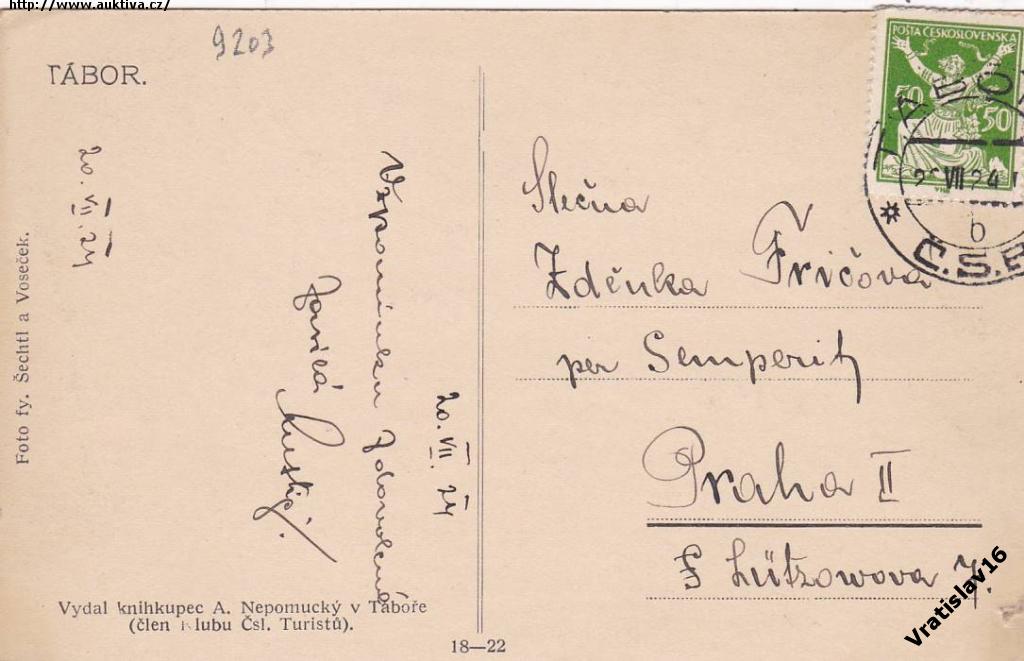 http://www.auktiva.cz/
9203
TÁBOR.
20. VII. 24
Foto fy. Šechtl a Voseček.
Vzpomínku z dovolené
zasílá
20. VII. 24
Vydal knihkupec A. Nepomucký v Táboře
(člen Klubu Čsl. Turistů).
18—22
POŠTA ČESKOSLOVENSKA
50 50
TÁBOR
VII 24
b
Č.S.R
Slečna
Zdeňka Fričova
per Semperit
Praha II
Lützowova 7.
Vratislav16